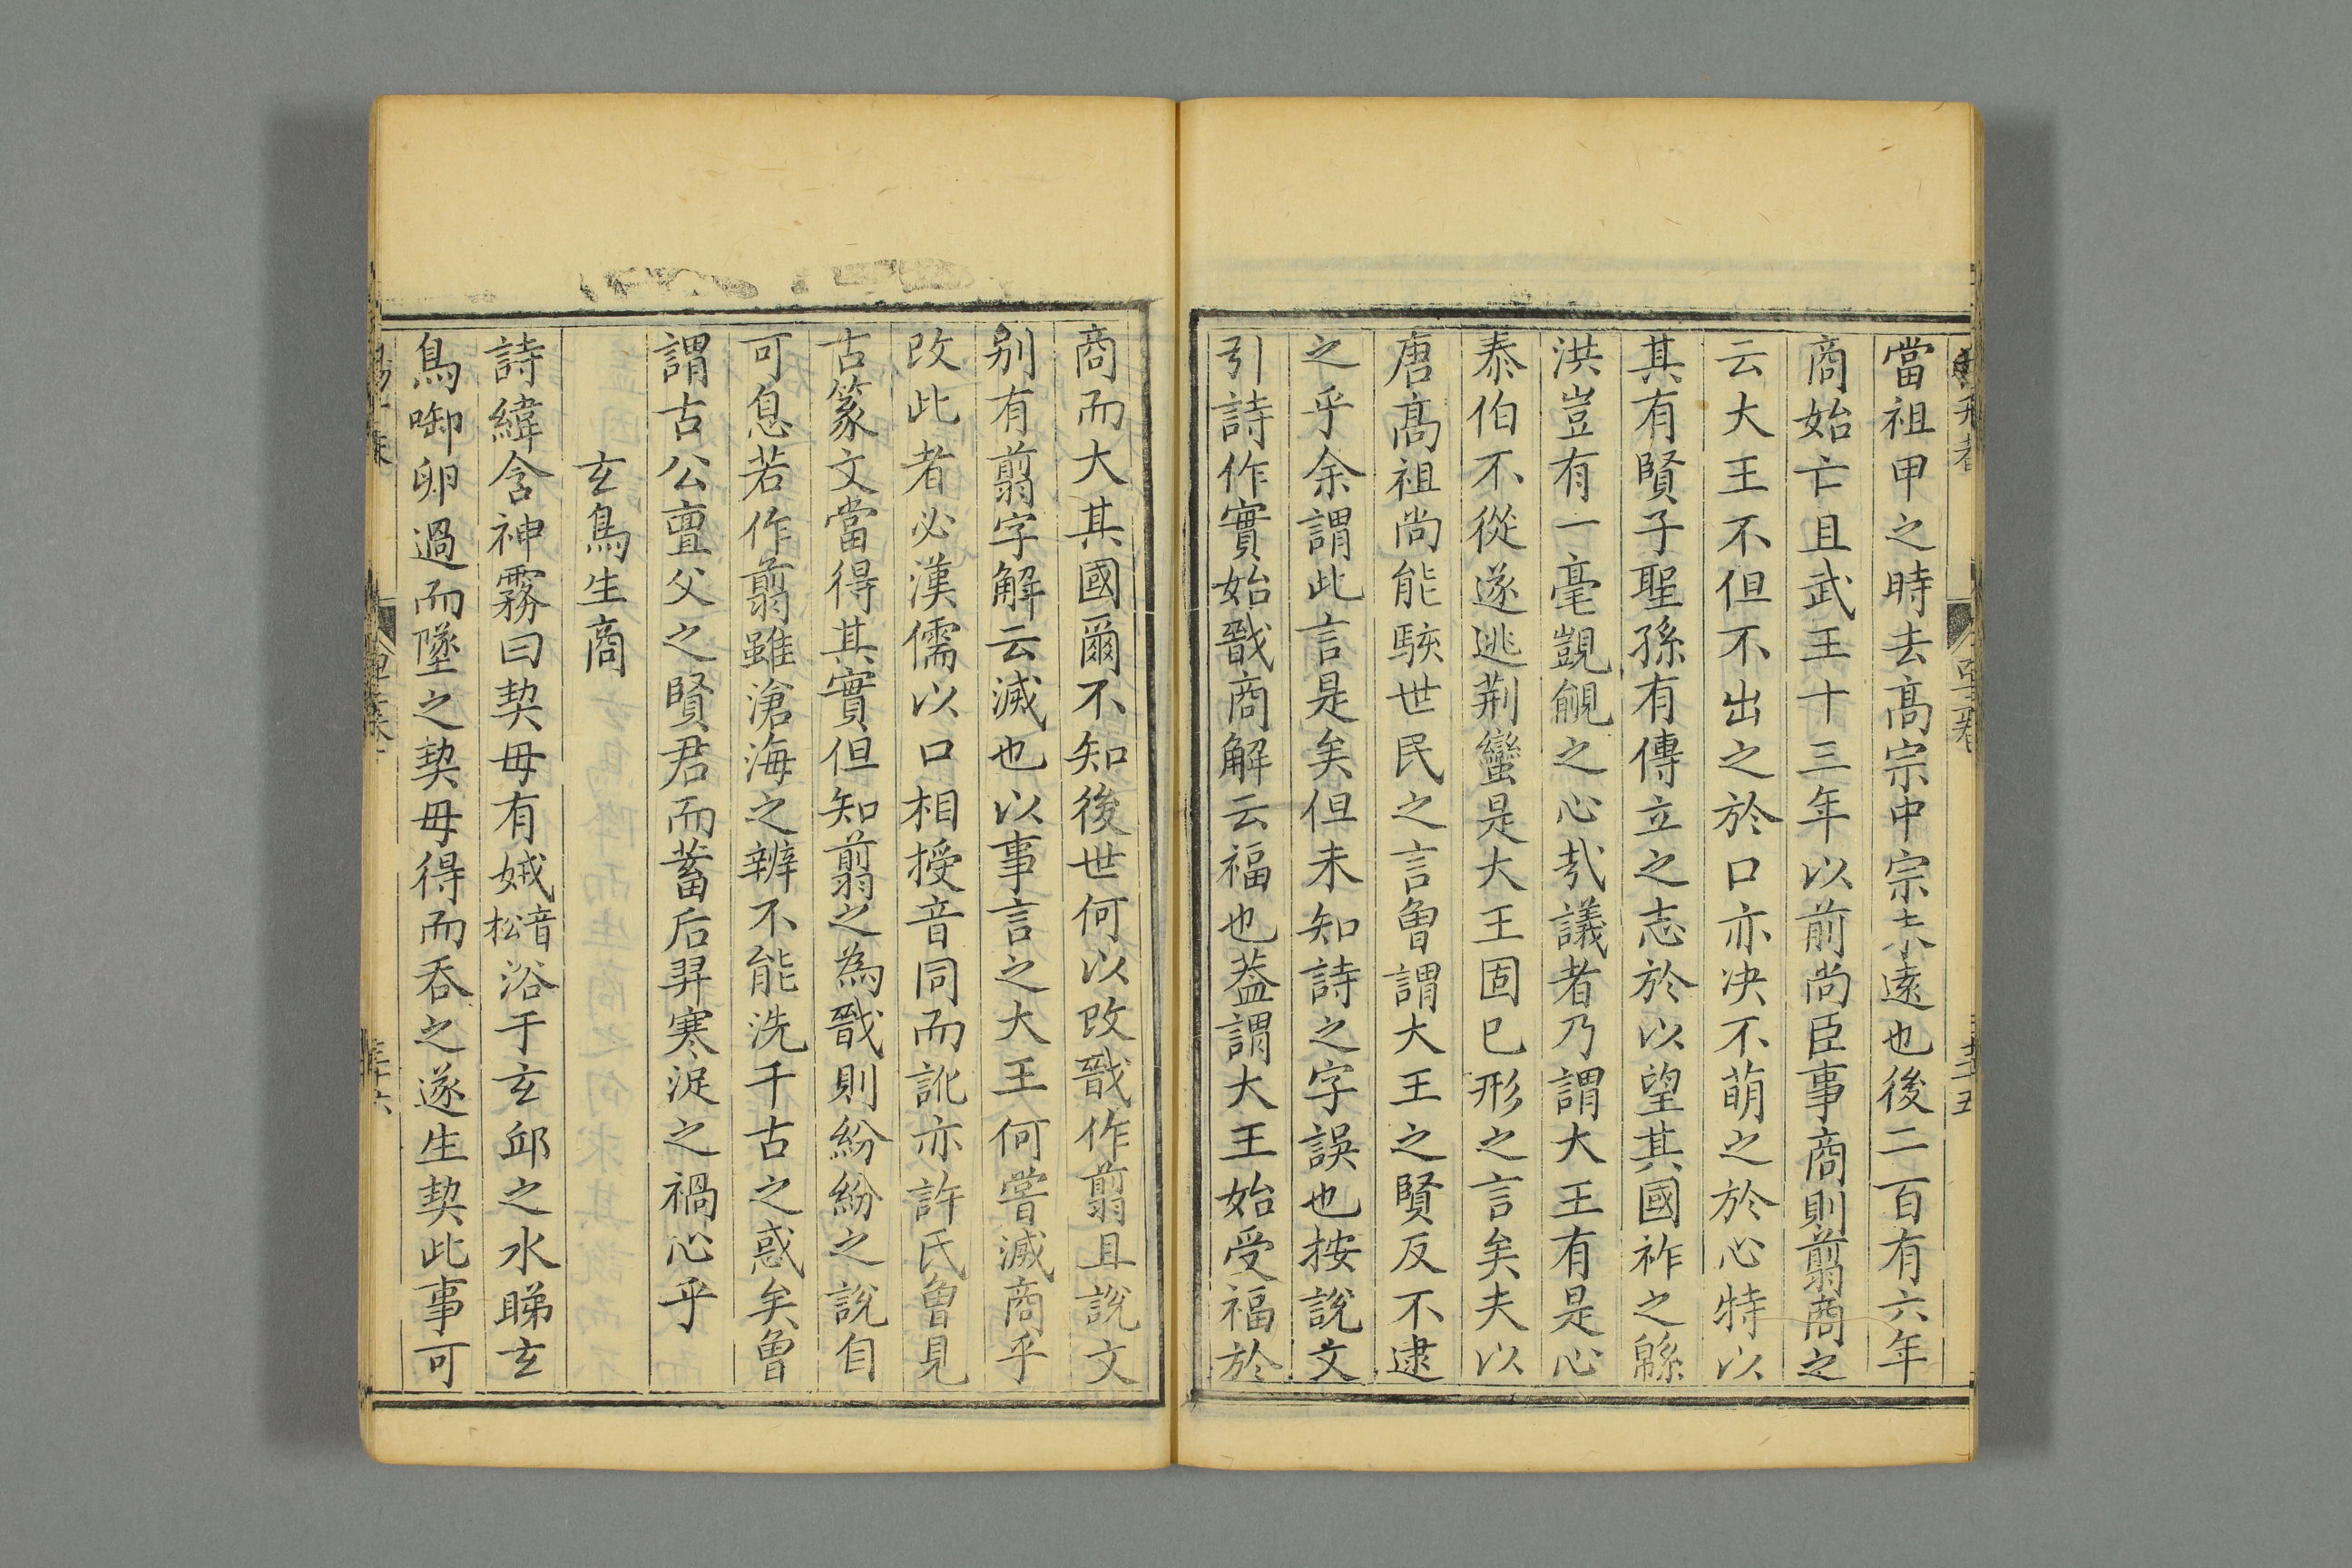 當祖甲之時去高宗中宗未遠也後二百有六年
商始亡且武王十三年以前尚臣事商則翦商之
云大王不但不出之於口亦决不萌之於心特以
其有賢子聖孫有傳立之志於以望其國祚之緜
洪豈有一毫覬覦之心㢤議者乃謂大王有是心
泰伯不從遂逃荆蠻是大王固已形之言矣夫以
唐高祖尚能駭世民之言曾謂大王之賢反不逮
之乎余謂此言是矣但未知詩之字誤也按說文
引詩作實始戩商解云福也葢謂大王始受福於
商而大其國爾不知後世何以改戩作翦且說文
别有翦字解云滅也以事言之大王何嘗滅商乎
改此者必漢儒以口相授音同而訛亦許氏曾見
古篆文當得其實但知翦之為戩則紛紛之說自
可息若作翦雖滄海之辨不能洗千古之惑矣曾
謂古公亶父之賢君而蓄后羿寒浞之禍心乎
玄鳥生商
詩緯含神霧曰契母有娀音松浴于玄邱之水睇玄
鳥啣卵過而墜之契母得而吞之遂生契此事可
三十六